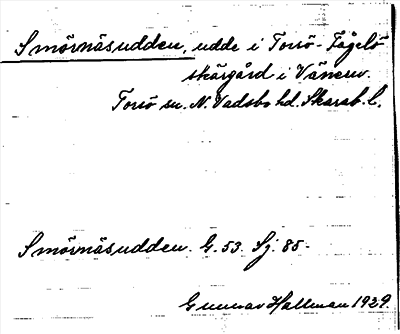 Smörnäsudden, udde i Torsö-Fågelö
skärgård i Vänern.
Torsö sn. N. Vadsbo hd. Skarab. l.
Smörnäsudden. G. 53. Sj. 85.
Gunnar Hallman 1929.